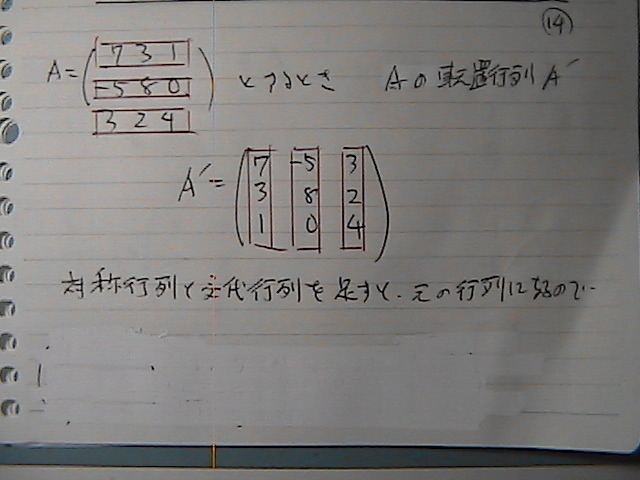 ⑭
A = ( 7 3 1 ) とするとき Aの転置行列 A′
-5 8 0
3 2 4
A′ = ( 7 -5 3 )
3 8 2
1 0 4
対称行列と交代行列を足すと、元の行列になるので…